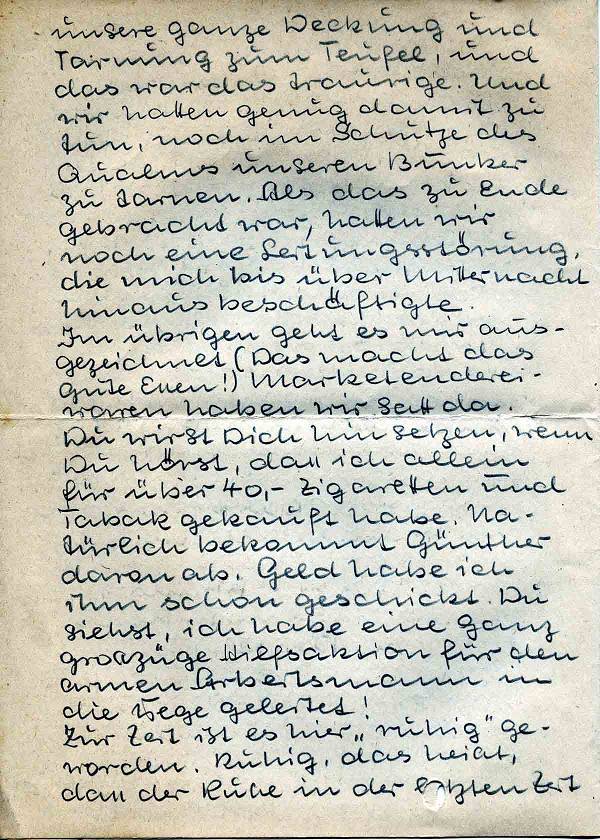 unsere ganze Deckung und
Tarnung zum Teufel, und
das war das traurige. Und
wir hatten genug damit zu
tun, noch im Schutze des
Qualms unseren Bunker
zu tarnen. Als das zu Ende
gebracht war, hatten wir
noch eine Leitungsstörung,
die mich bis über Mitternacht
hinaus beschäftigte.
Im übrigen geht es mir aus-
gezeichnet (Das macht das
gute Essen!) Marketenderei-
waren haben wir satt da.
Du wirst Dich hinsetzen, wenn
Du hörst, dass ich allein
für über 40,- Zigaretten und
Tabak gekauft habe. Na-
türlich bekommt Günther
davon ab. Geld habe ich
ihm schon geschickt. Du
siehst, ich habe eine ganz
grosszüge Hilfsaktion für den
armen Arbeitsmann in
die Wege geleitet!
Zur Zeit ist es hier „ruhig" ge-
worden. Ruhig, das heisst,
dass der Ruhe in der letzten Zeit